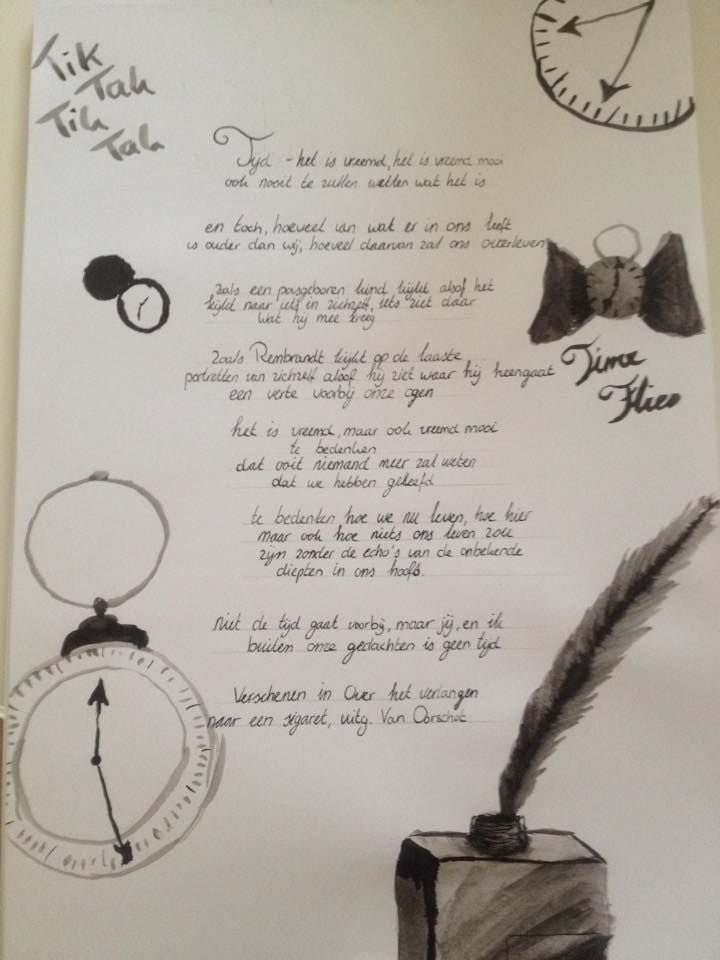 Tik
Tak
Tik
Tak
Tijd - het is vreemd, het is vreemd mooi
ook nooit te zullen weten wat het is
en toch, hoeveel van wat er in ons leeft
is ouder dan wij, hoeveel daarvan zal ons overleven
zoals een pasgeboren kind kijkt alsof het
kijkt naar iets in zichzelf, iets ziet daar
wat hij mee kreeg
zoals Rembrandt kijkt op de laatste
portretten van zichzelf alsof hij ziet waar hij heengaat
een verte voorbij onze ogen
het is vreemd, maar ook vreemd mooi
te bedenken
dat ooit niemand meer zal weten
dat we hebben geleefd
te bedenken hoe we nu leven, hoe hier
maar ook hoe niets ons leven zou
zijn zonder de echo's van de onbekende
diepten in ons hoofd.
niet de tijd gaat voorbij, maar jij, en ik
buiten onze gedachten is geen tijd
Verschenen in Over het verlangen
naar een sigaret, uitg. Van Oorschot
Time
Flies